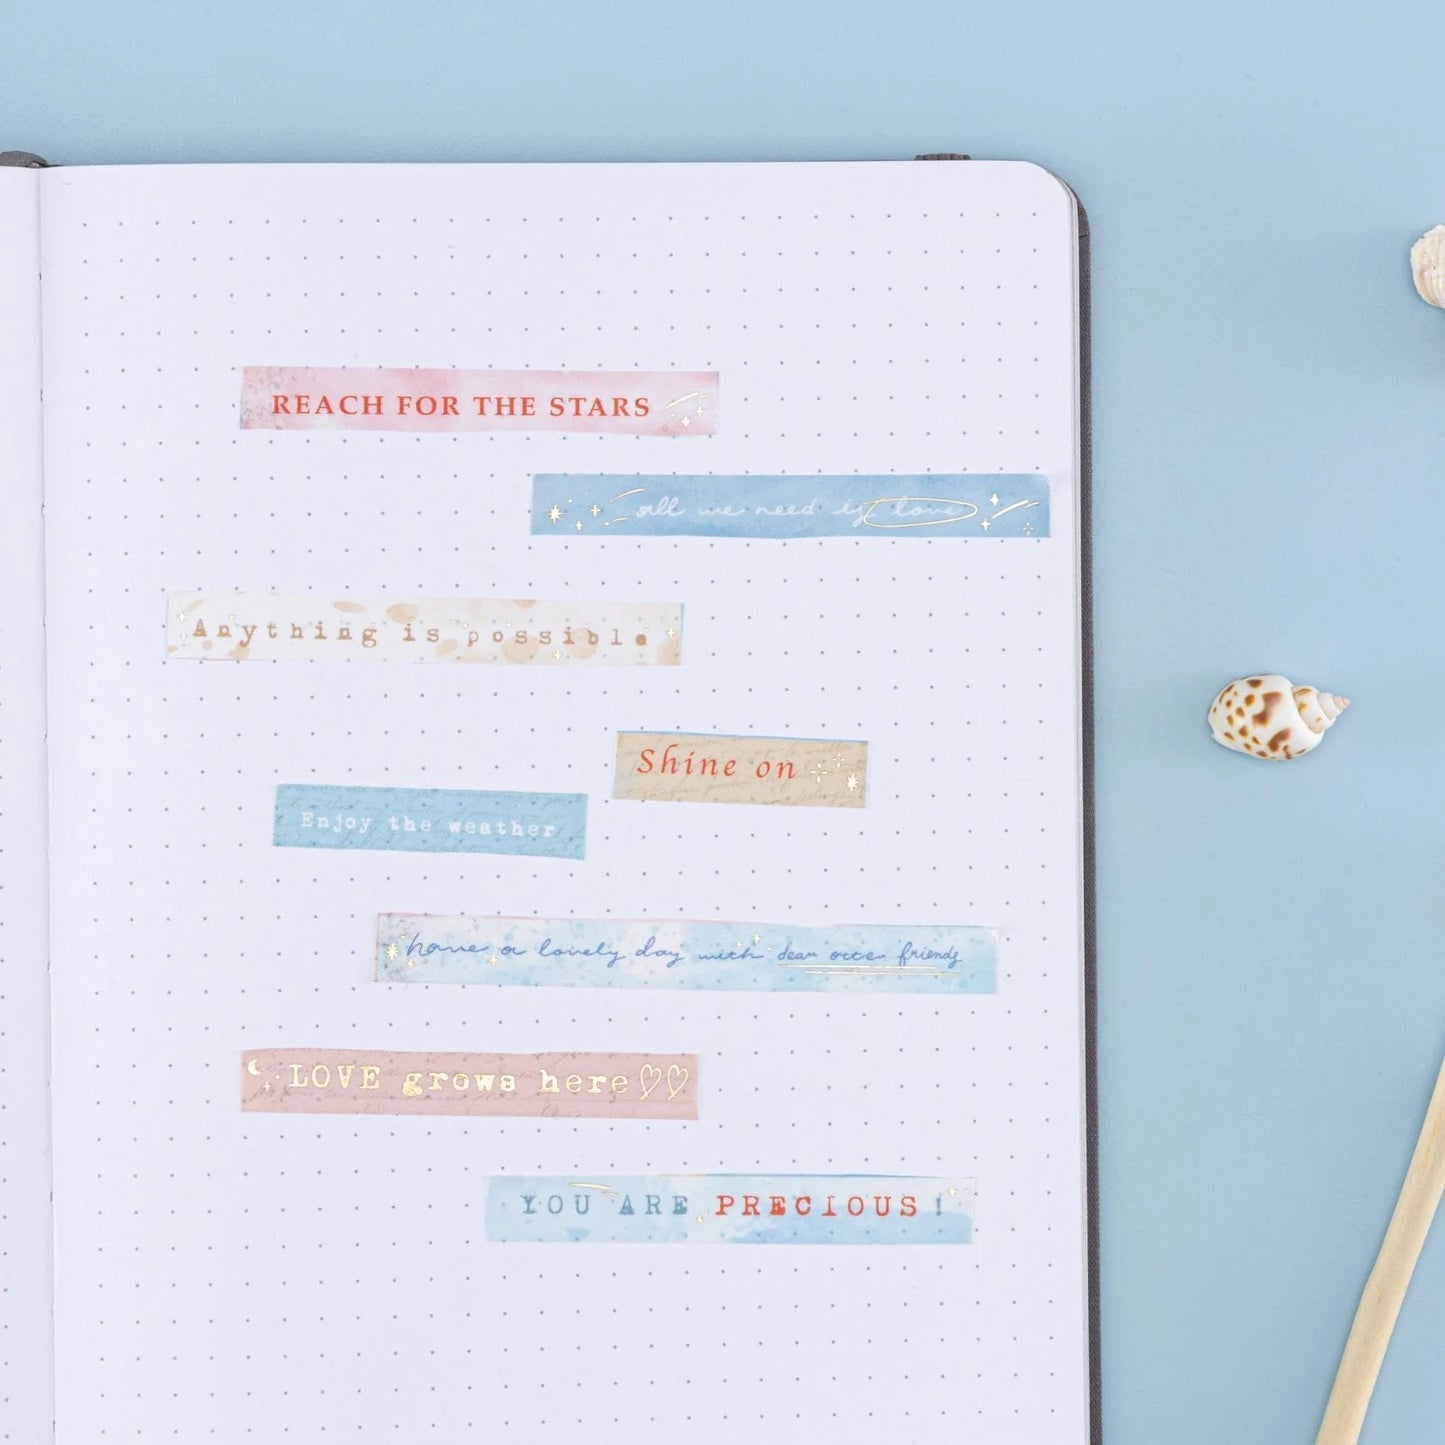 REACH FOR THE STARS
all we need is love
Anything is possible
Shine on
Enjoy the weather
have a lovely day with dear otter friends
LOVE grows here
YOU ARE PRECIOUS!